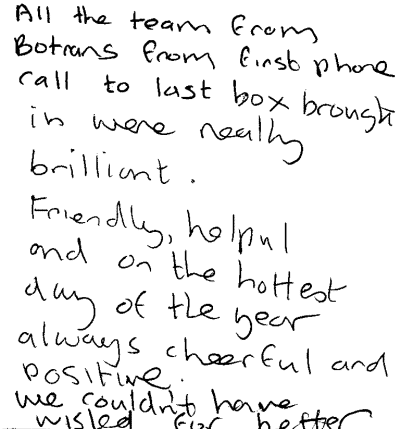 All the team from
Botrans from first phone
call to last box brought
in were really
brilliant.
Friendly, helpul
and on the hottest
day of the year
always cheerful and
positive.
we couldn't have
wisled for better